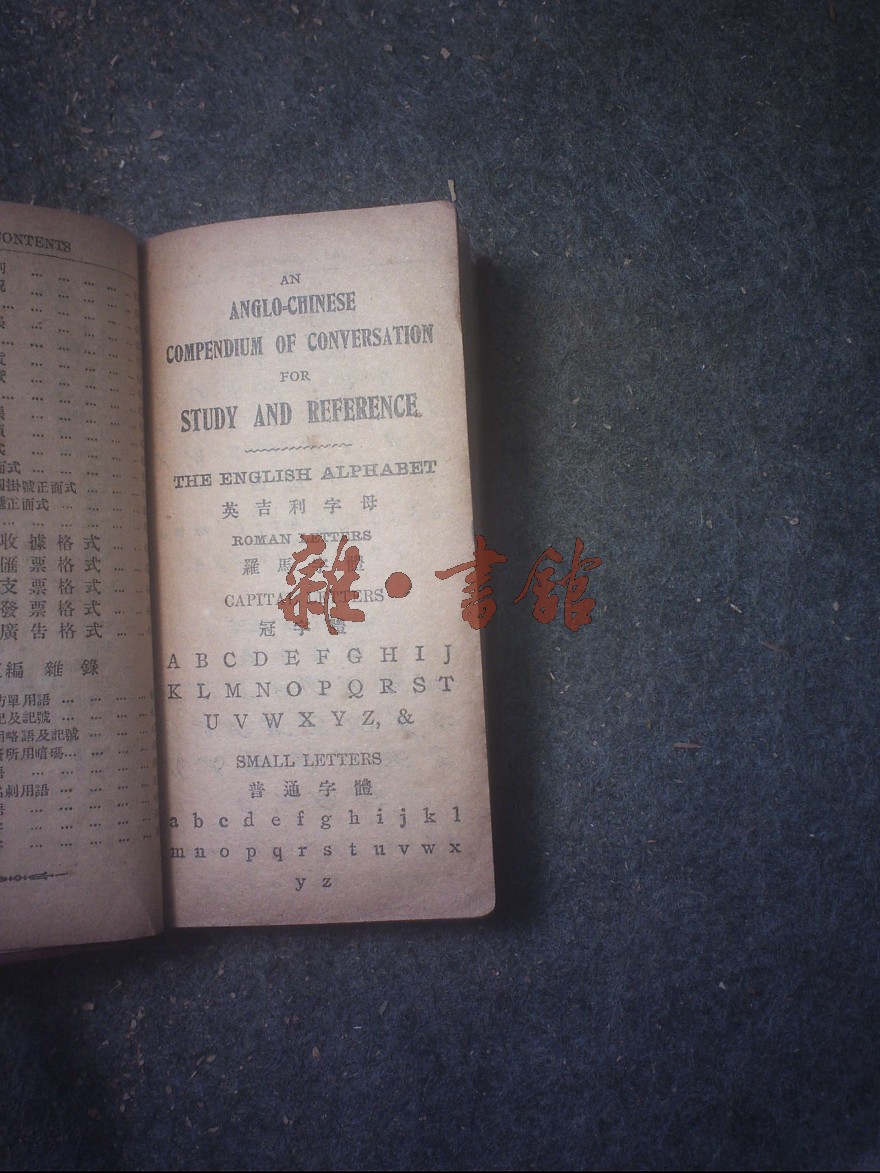 CONTENTS
面式
掛號正面式
正面式
收據格式
匯票格式
支票格式
發票格式
廣告格式
編 雜錄
單用語
記及記號
用略語及記號
所用
刺用語
AN
ANGLO-CHINESE
COMPENDIUM OF CONVERSATION
FOR
STUDY AND REFERENCE.
THE ENGLISH ALPHABET
英吉利字母
ROMAN LETTERS
羅馬 體
CAPITAL LETTERS
冠字體
A B C D E F G H I J
K L M N O P Q R S T
U V W X Y Z, &
SMALL LETTERS
普通字體
a b c d e f g h i j k l
m n o p q r s t u v w x
y z
雜·書館